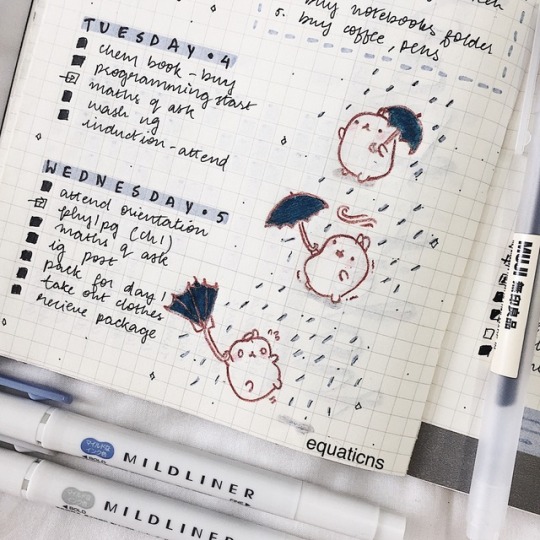 buy notebooks folder
5. buy coffee, pens
TUESDAY • 4
chem book - buy
programming start
maths q ask
wash ug
induction - attend
WEDNESDAY • 5
attend orientation
phy/pg (ch1)
maths q ask
ig post
pack for day 1
take out clothes
recieve package
equaticns
MUJI 無印良品
マイルドな
インク色
BOLD
MILDLINER
BOLD
MILDLINER